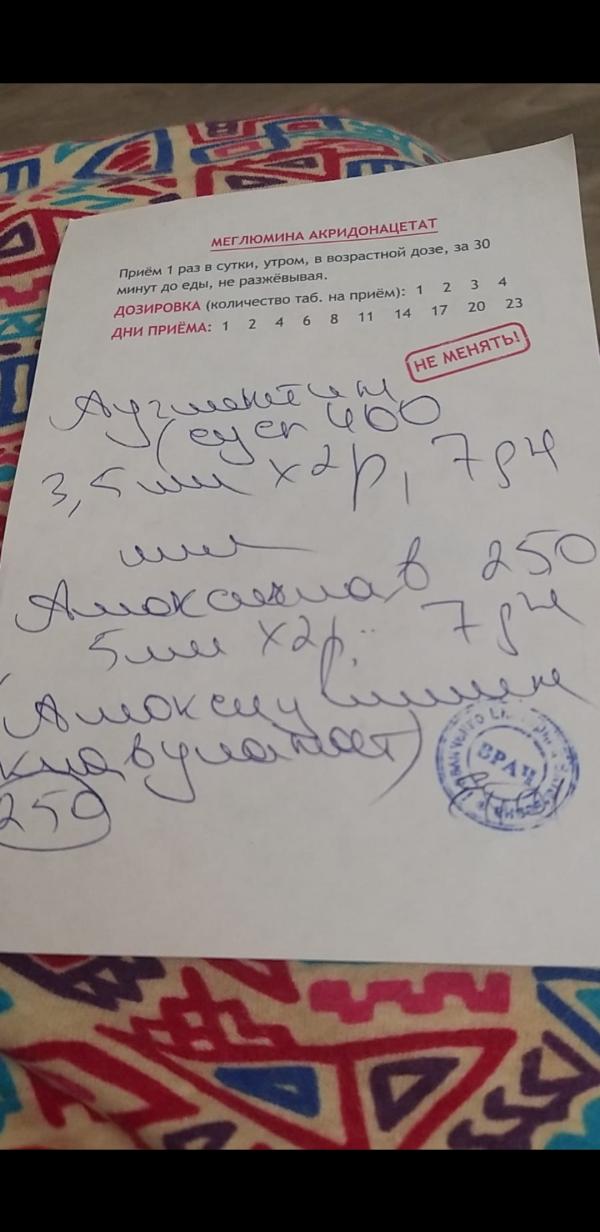 МЕГЛЮМИНА АКРИДОНАЦЕТАТ
Приём 1 раз в сутки, утром, в возрастной дозе, за 30
минут до еды, не разжёвывая.
ДОЗИРОВКА (количество таб. на приём): 1 2 3 4
ДНИ ПРИЁМА: 1 2 4 6 8 11 14 17 20 23
НЕ МЕНЯТЬ!
Аугментин
(сусп 400
3,5 мл х 2 р, 7 дн
или
Амоксиклав 250
5 мл х 2 р. 7 дн
(Амоксициллин
клавуланат)
250
ВРАЧ